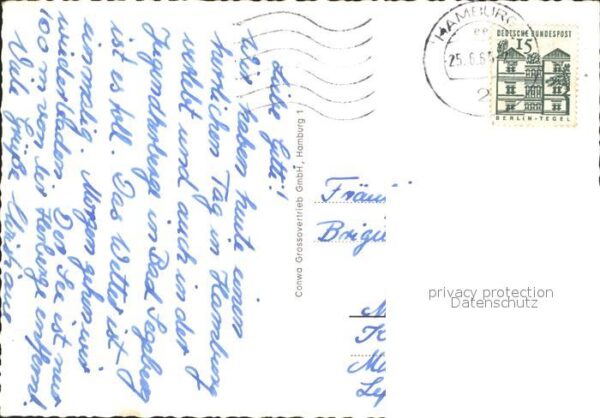 Liebe Gitti!
Wir haben heute einen
herrlichen Tag in Hamburg
verlebt und auch in der
Jugendherberge in Bad Segeberg
ist es toll. Das Wetter ist
einmalig. Morgen gehen wir
wieder baden. Der See ist nur
100 m von der Herberge entfernt.
Viele Grüße
Conwa Grossovertrieb GmbH, Hamburg 1
HAMBURG
25.6.65
2
DEUTSCHE BUNDESPOST
15
BERLIN-TEGEL
Fräu
Brigi
privacy protection
Datenschutz